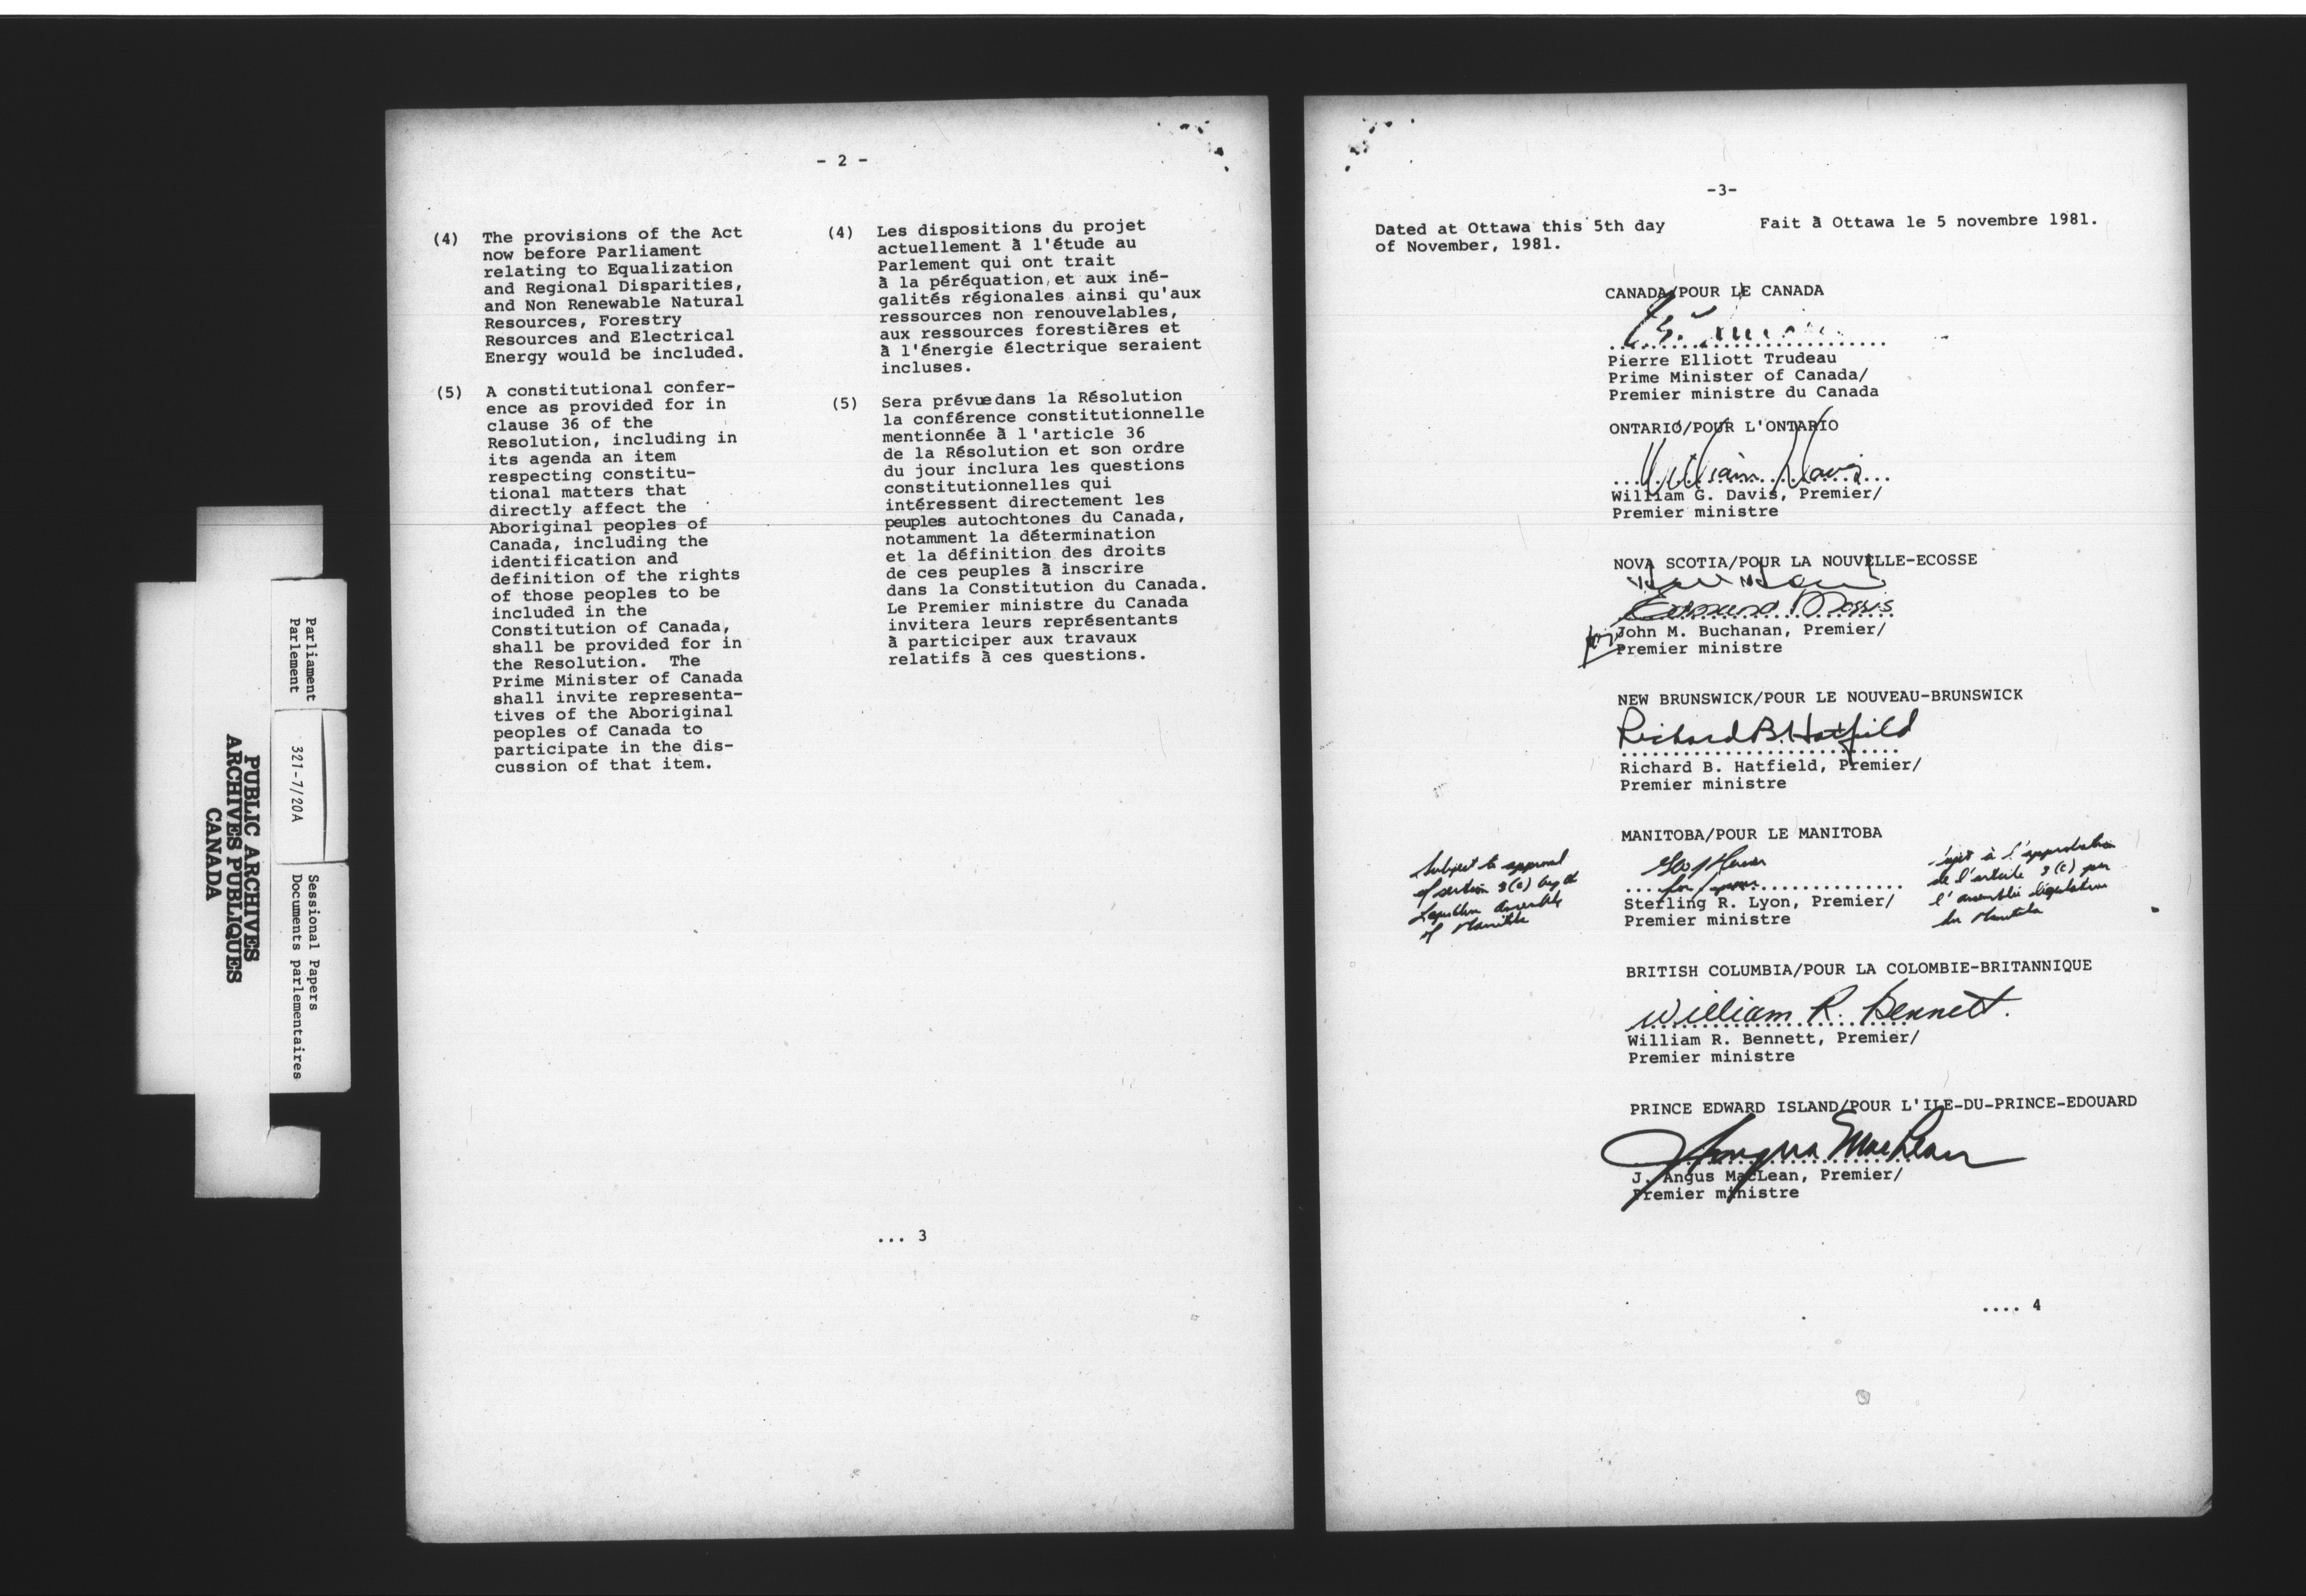 Parliament
Parlement
321-7/20A
Sessional Papers
Documents parlementaires
PUBLIC ARCHIVES
ARCHIVES PUBLIQUES
CANADA
- 2 -
(4) The provisions of the Act
now before Parliament
relating to Equalization
and Regional Disparities,
and Non Renewable Natural
Resources, Forestry
Resources and Electrical
Energy would be included.
(5) A constitutional confer-
ence as provided for in
clause 36 of the
Resolution, including in
its agenda an item
respecting constitu-
tional matters that
directly affect the
Aboriginal peoples of
Canada, including the
identification and
definition of the rights
of those peoples to be
included in the
Constitution of Canada,
shall be provided for in
the Resolution. The
Prime Minister of Canada
shall invite representa-
tives of the Aboriginal
peoples of Canada to
participate in the dis-
cussion of that item.
(4) Les dispositions du projet
actuellement à l'étude au
Parlement qui ont trait
à la péréquation, et aux iné-
galités régionales ainsi qu'aux
ressources non renouvelables,
aux ressources forestières et
à l'énergie électrique seraient
incluses.
(5) Sera prévue dans la Résolution
la conférence constitutionnelle
mentionnée à l'article 36
de la Résolution et son ordre
du jour inclura les questions
constitutionnelles qui
intéressent directement les
peuples autochtones du Canada,
notamment la détermination
et la définition des droits
de ces peuples à inscrire
dans la Constitution du Canada.
Le Premier ministre du Canada
invitera leurs représentants
à participer aux travaux
relatifs à ces questions.
... 3
-3-
Dated at Ottawa this 5th day
of November, 1981.
Fait à Ottawa le 5 novembre 1981.
CANADA/POUR LE CANADA
Pierre Elliott Trudeau
Prime Minister of Canada/
Premier ministre du Canada
ONTARIO/POUR L'ONTARIO
William Davis
William G. Davis, Premier/
Premier ministre
NOVA SCOTIA/POUR LA NOUVELLE-ECOSSE
Edmund Morris
for John M. Buchanan, Premier/
Premier ministre
NEW BRUNSWICK/POUR LE NOUVEAU-BRUNSWICK
Richard B. Hatfield
Richard B. Hatfield, Premier/
Premier ministre
MANITOBA/POUR LE MANITOBA
Subject to approval
of section 3(c) by
Legislative Assembly
of Manitoba
for
Sterling R. Lyon, Premier/
Premier ministre
Sujet à l'approbation
de l'article 3(c) par
l'assemblée législative
du Manitoba
BRITISH COLUMBIA/POUR LA COLOMBIE-BRITANNIQUE
William R. Bennett.
William R. Bennett, Premier/
Premier ministre
PRINCE EDWARD ISLAND/POUR L'ILE-DU-PRINCE-EDOUARD
J. Angus MacLean
J. Angus MacLean, Premier/
Premier ministre
.... 4